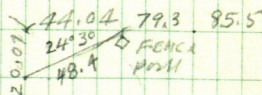 44.04 79.3 85.5
24°30
FENCE
48.4 POST
20.07